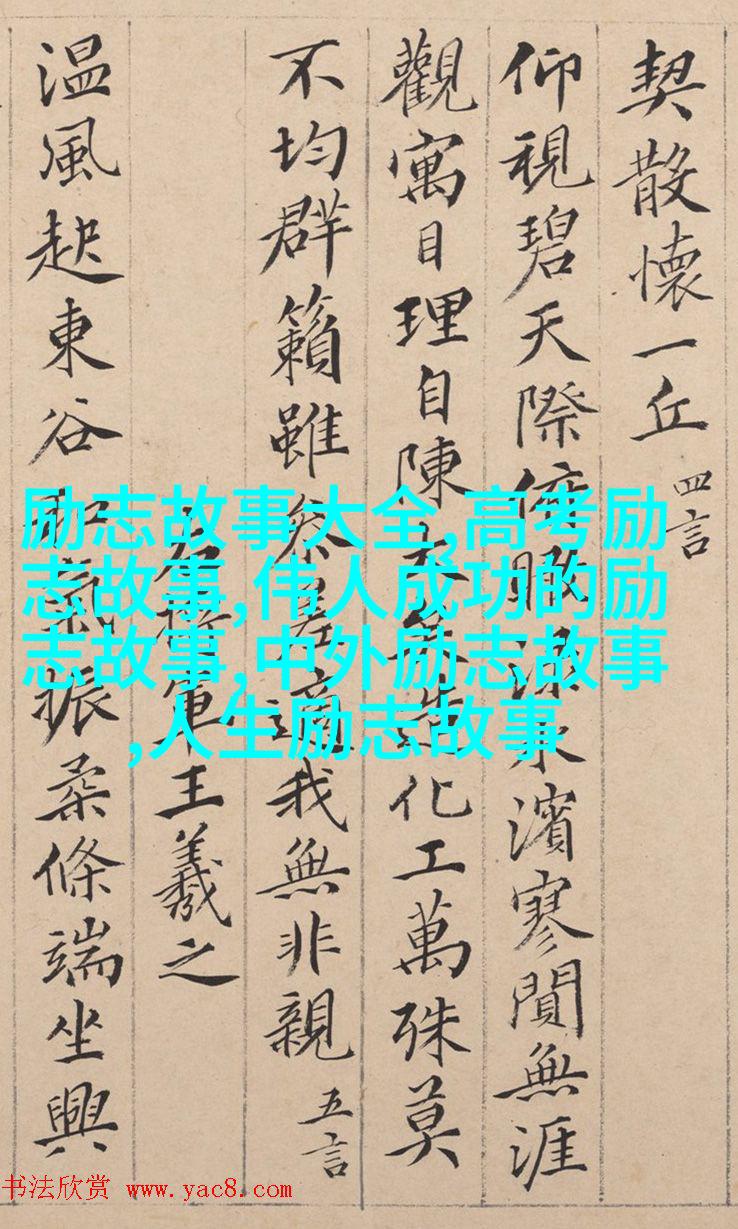 契散懷一丘 四言
仰視碧天際俯瞰淥水濱寥閴無涯
觀寓目理自陳大矣造化工萬殊莫
不均群籟雖参差適我無非親 五言
右將軍王羲之
温風起東谷和氣振柔條端坐興
励志故事大全,高考励
志故事,伟人成功的励
志故事,中外励志故事
,人生励志故事
书法欣赏 www.yac8.com